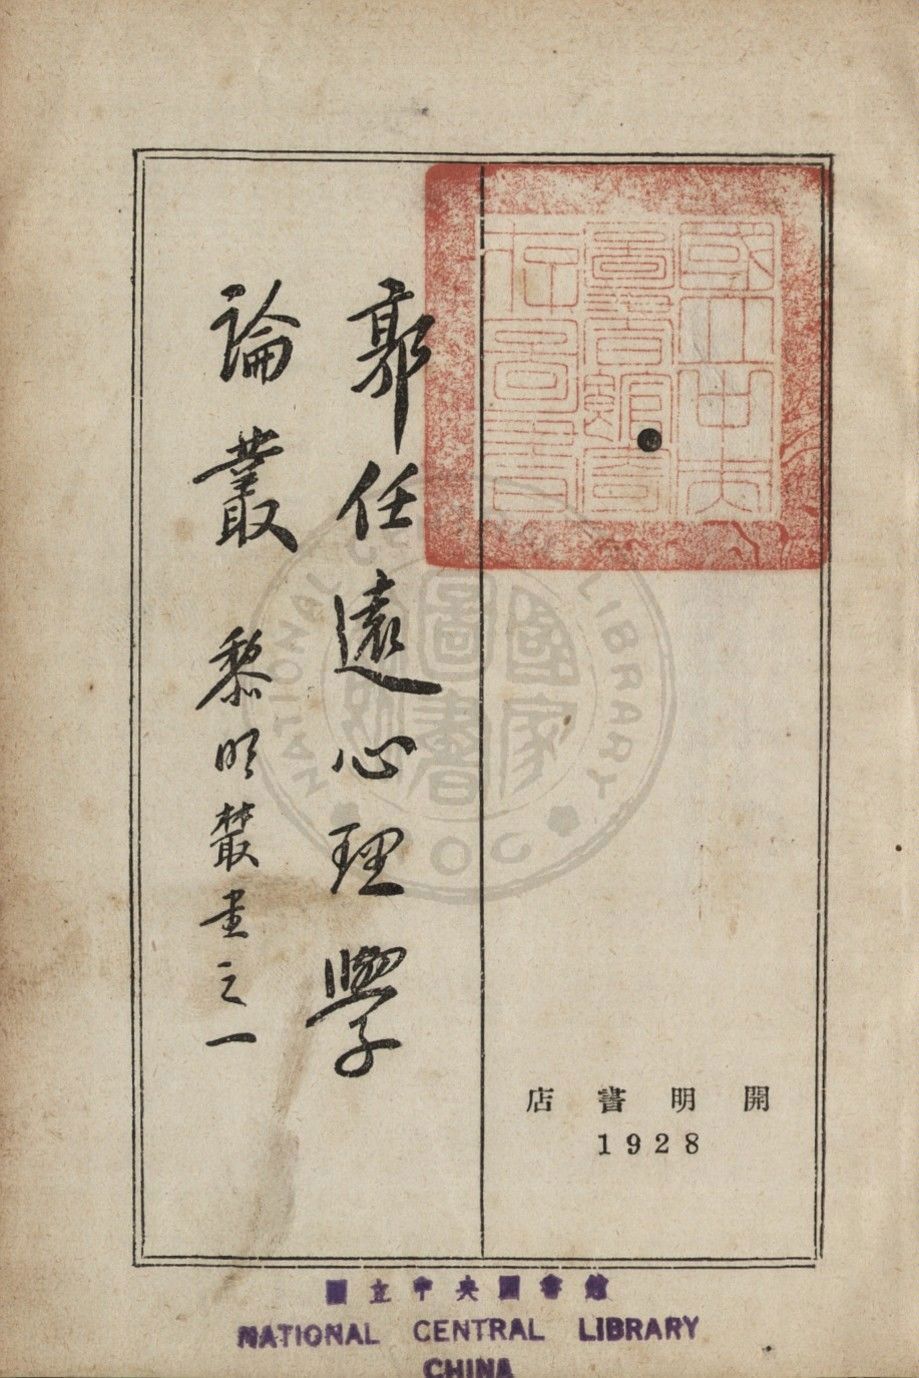 郭任遠心理學
論叢 黎明叢書之一
開明書店
1928
國立中央圖書館收藏
國立中央圖書館
NATIONAL CENTRAL LIBRARY
CHINA
國家圖書館
NATIONAL CENTRAL LIBRARY
ROC